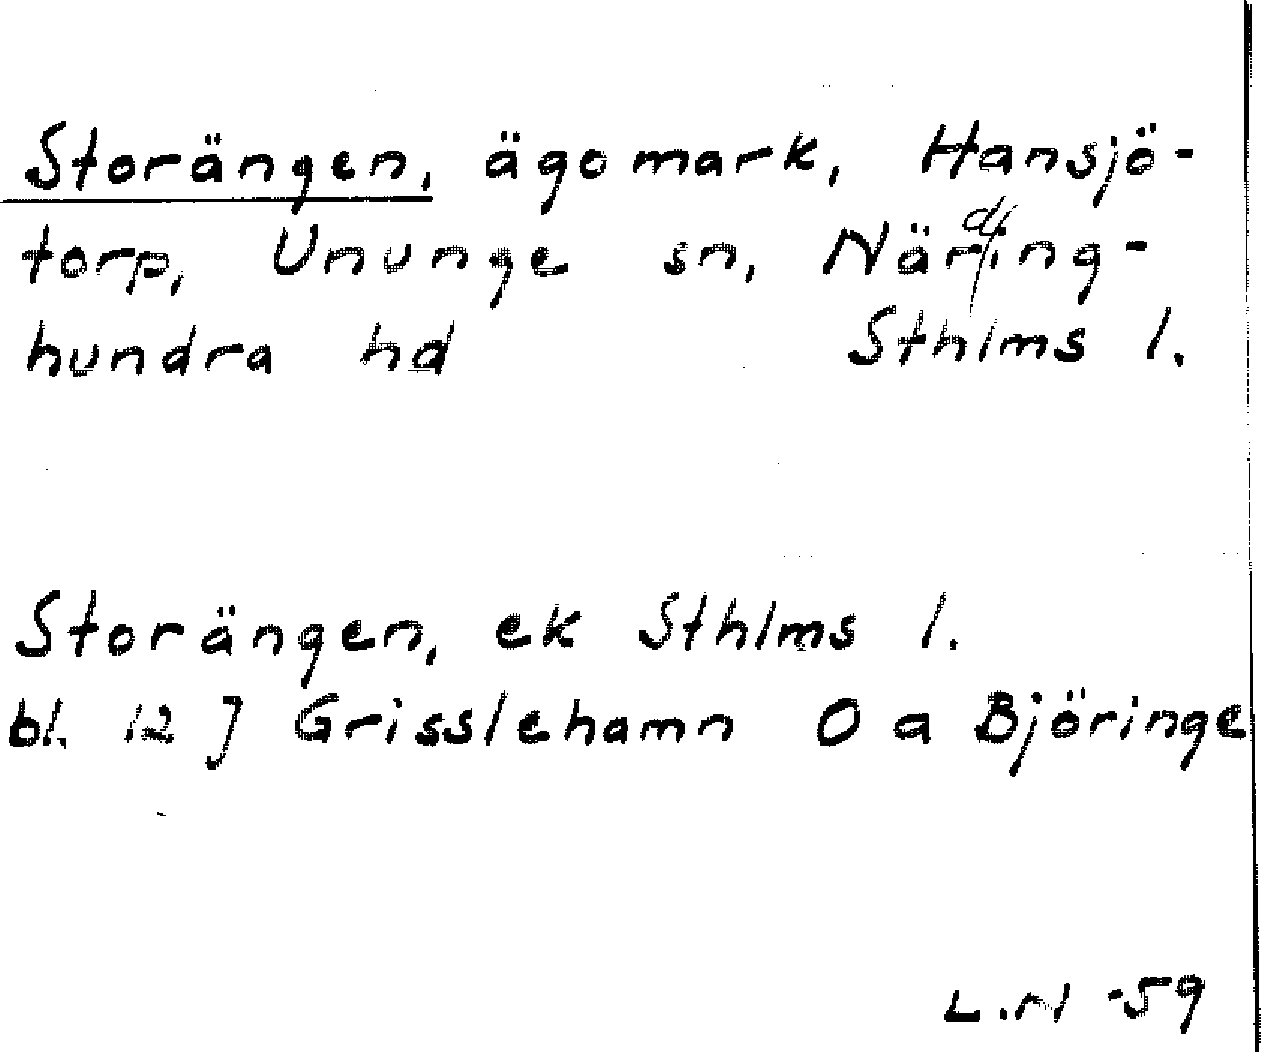 Storängen, ägomark, Hansjö-
torp, Ununge sn, Närding-
hundra hd Sthlms l.
Storängen, ek Sthlms l.
bl. 12 J Grisslehamn O a Björinge
L.N -59